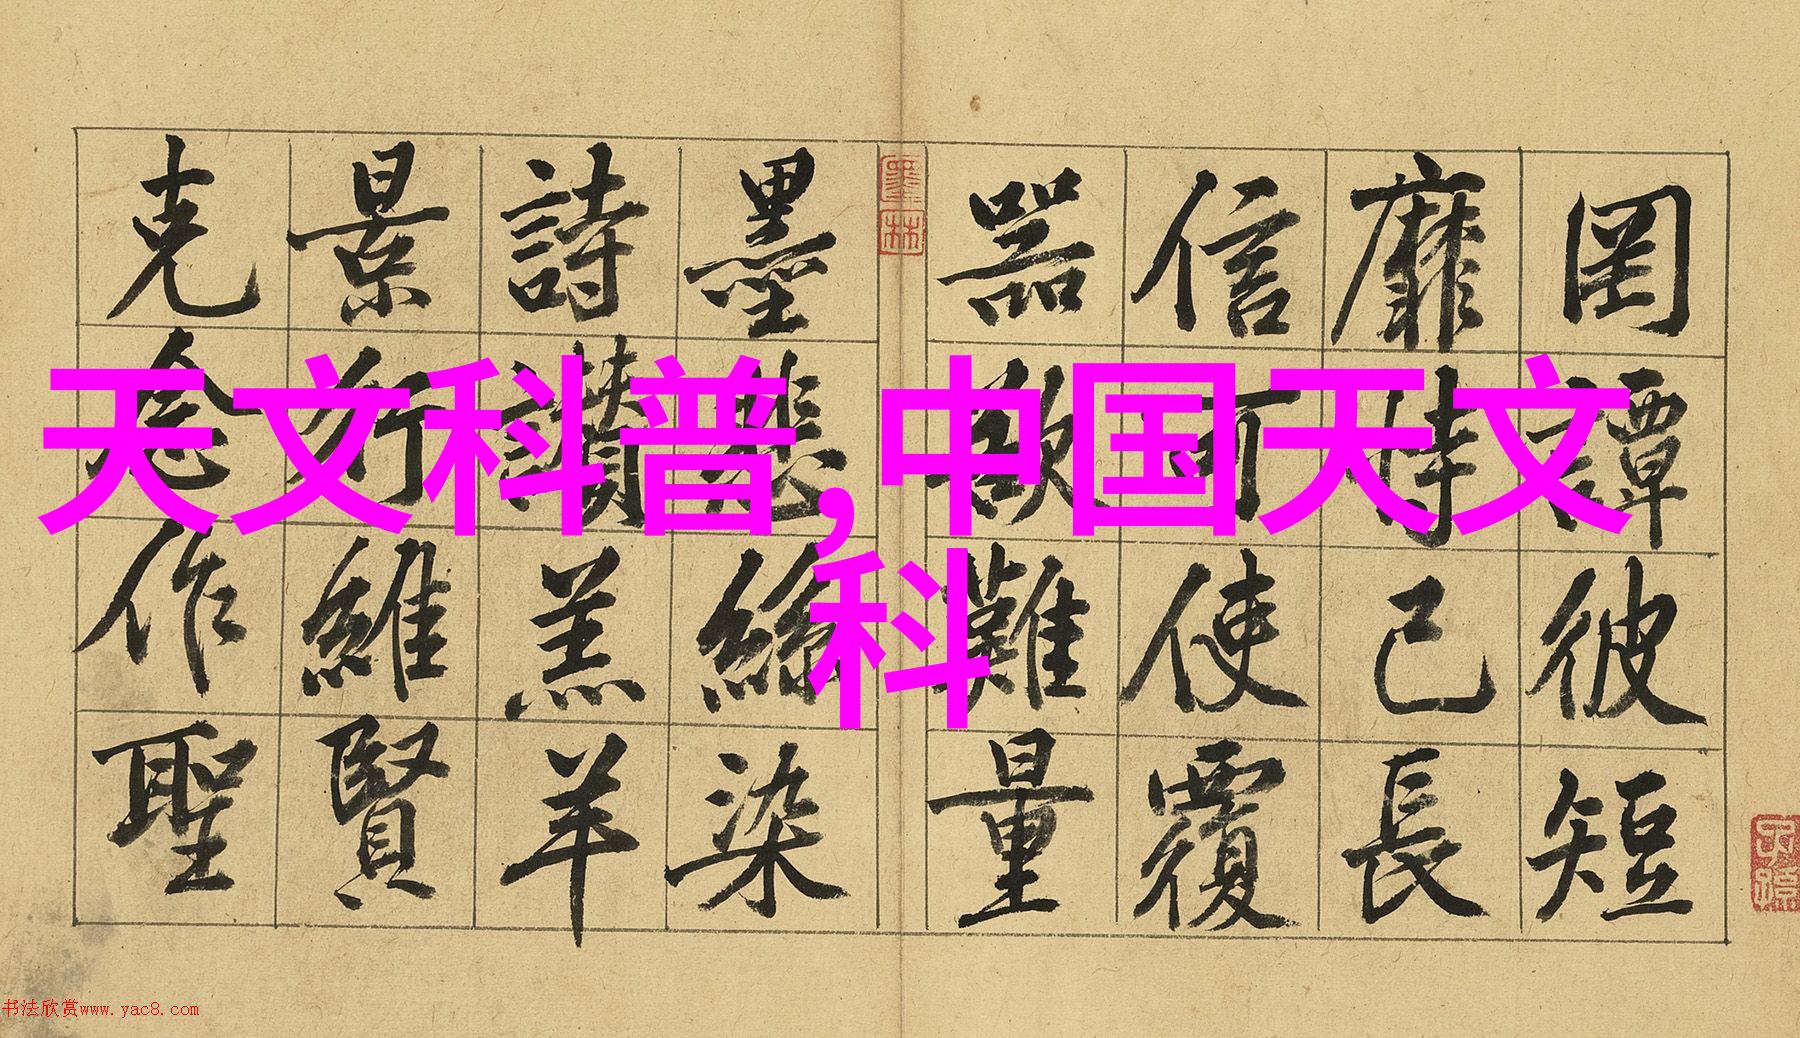 天文科普,中国天文
科
罔譚彼短
靡恃己長
信可使覆
器欲難量
墨林
墨悲絲染
詩讚羔羊
景行維賢
克念作聖
子孫
书法欣赏www.yac8.com